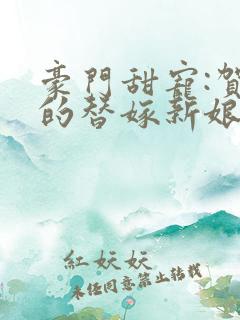 豪門甜寵:賀
的替嫁新娘
紅妖妖
未經同意禁止轉載